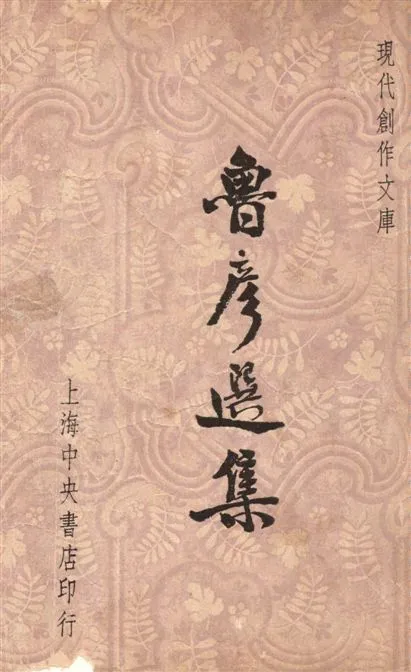 現代創作文庫
魯彥選集
上海中央書店印行